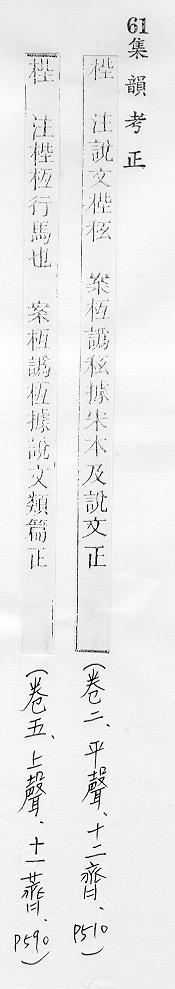 61集韻考正
梐 注說文梐 案枑譌據宋本及說文正 (卷二、平聲、十二齊、P510)
梐 注梐枑行馬也 案枑譌據說文類篇正 (卷五、上聲、十一薺、P590)